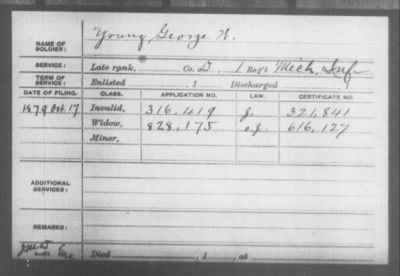 Young, George W.
NAME OF SOLDIER:
SERVICE: Late rank, Co. D, 1 Reg't Mich. Inf
TERM OF SERVICE: Enlisted , 1 Discharged , 1
DATE OF FILING. CLASS. APPLICATION NO. LAW. CERTIFICATE NO.
1879 Oct. 17 Invalid, 316,419 g. 321,841
Widow, 828,175 o.g. 616,127
Minor,
ADDITIONAL SERVICES:
REMARKS:
Died , 1 , at